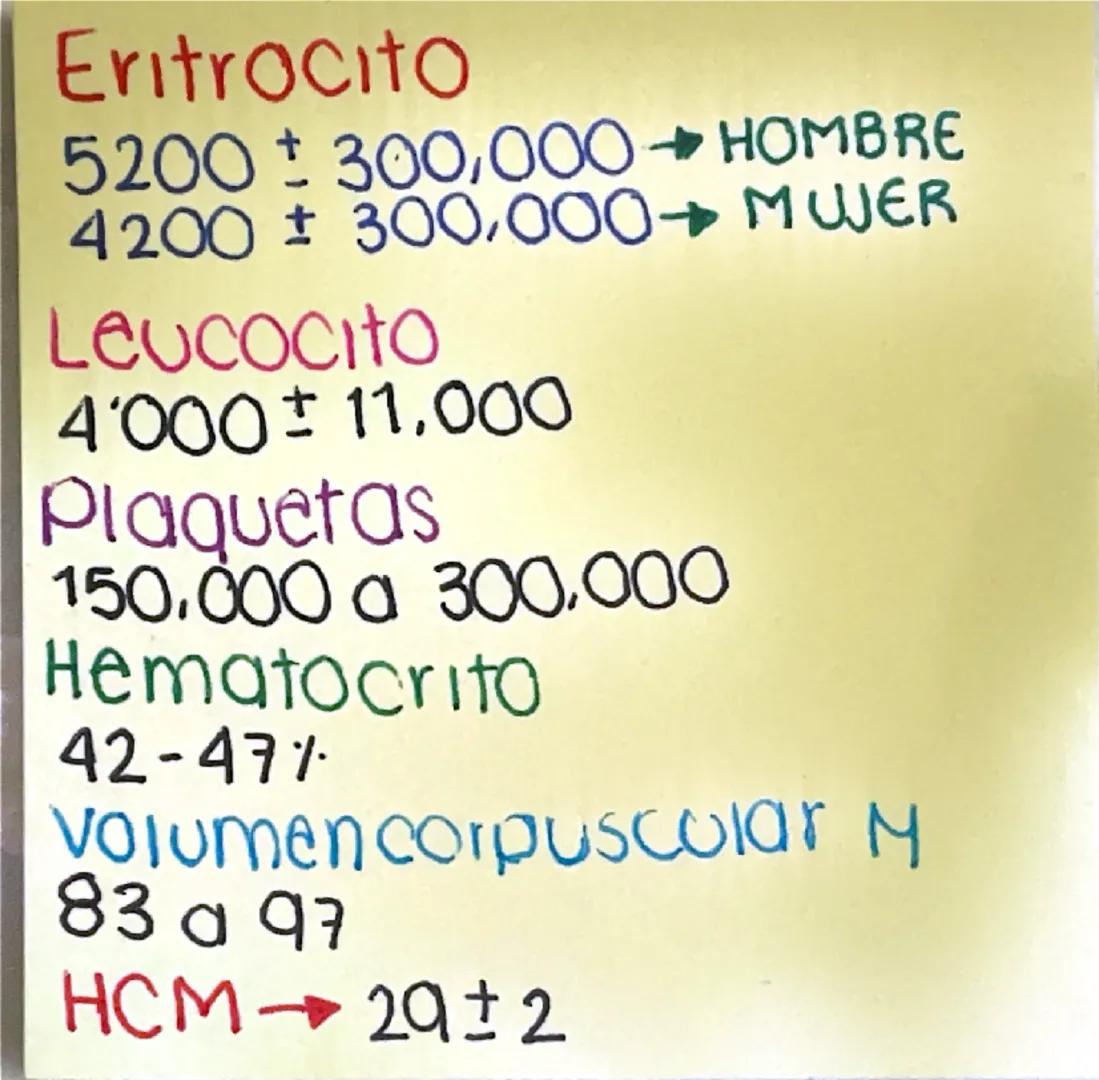 Eritrocito
5200 ± 300,000 → HOMBRE
4200 ± 300,000 → MUJER
Leucocito
4'000 ± 11,000
Plaquetas
150,000 a 300,000
Hematocrito
42-47%
Volumen corpuscular M
83 a 97
HCM → 29 ± 2